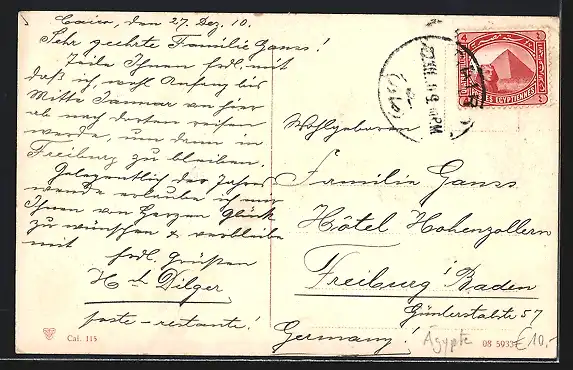 Cairo, den 27. Dez. 10.
Sehr geehrte Familie Ganss!
Teile Ihnen frdl. mit
daß ich, wohl Anfang bis
Mitte Januar von hier
ab nach dorten reisen
werde, um dann in
Freiburg zu bleiben.
Gelegentlich des Jahres
wende erlaube ich mir
Ihnen von Herzen Glück
zu wünschen & verbleibe
mit frdl. Grüßen
Hch Dilger
poste-restante!
Cai. 115
4
POSTES EGYPTIENNES
PM
Wohlgeboren
Familie Ganss
Hôtel Hohenzollern
Freiburg i Baden
Günterstalstr 57
Germany!
Ägypte
€10,-